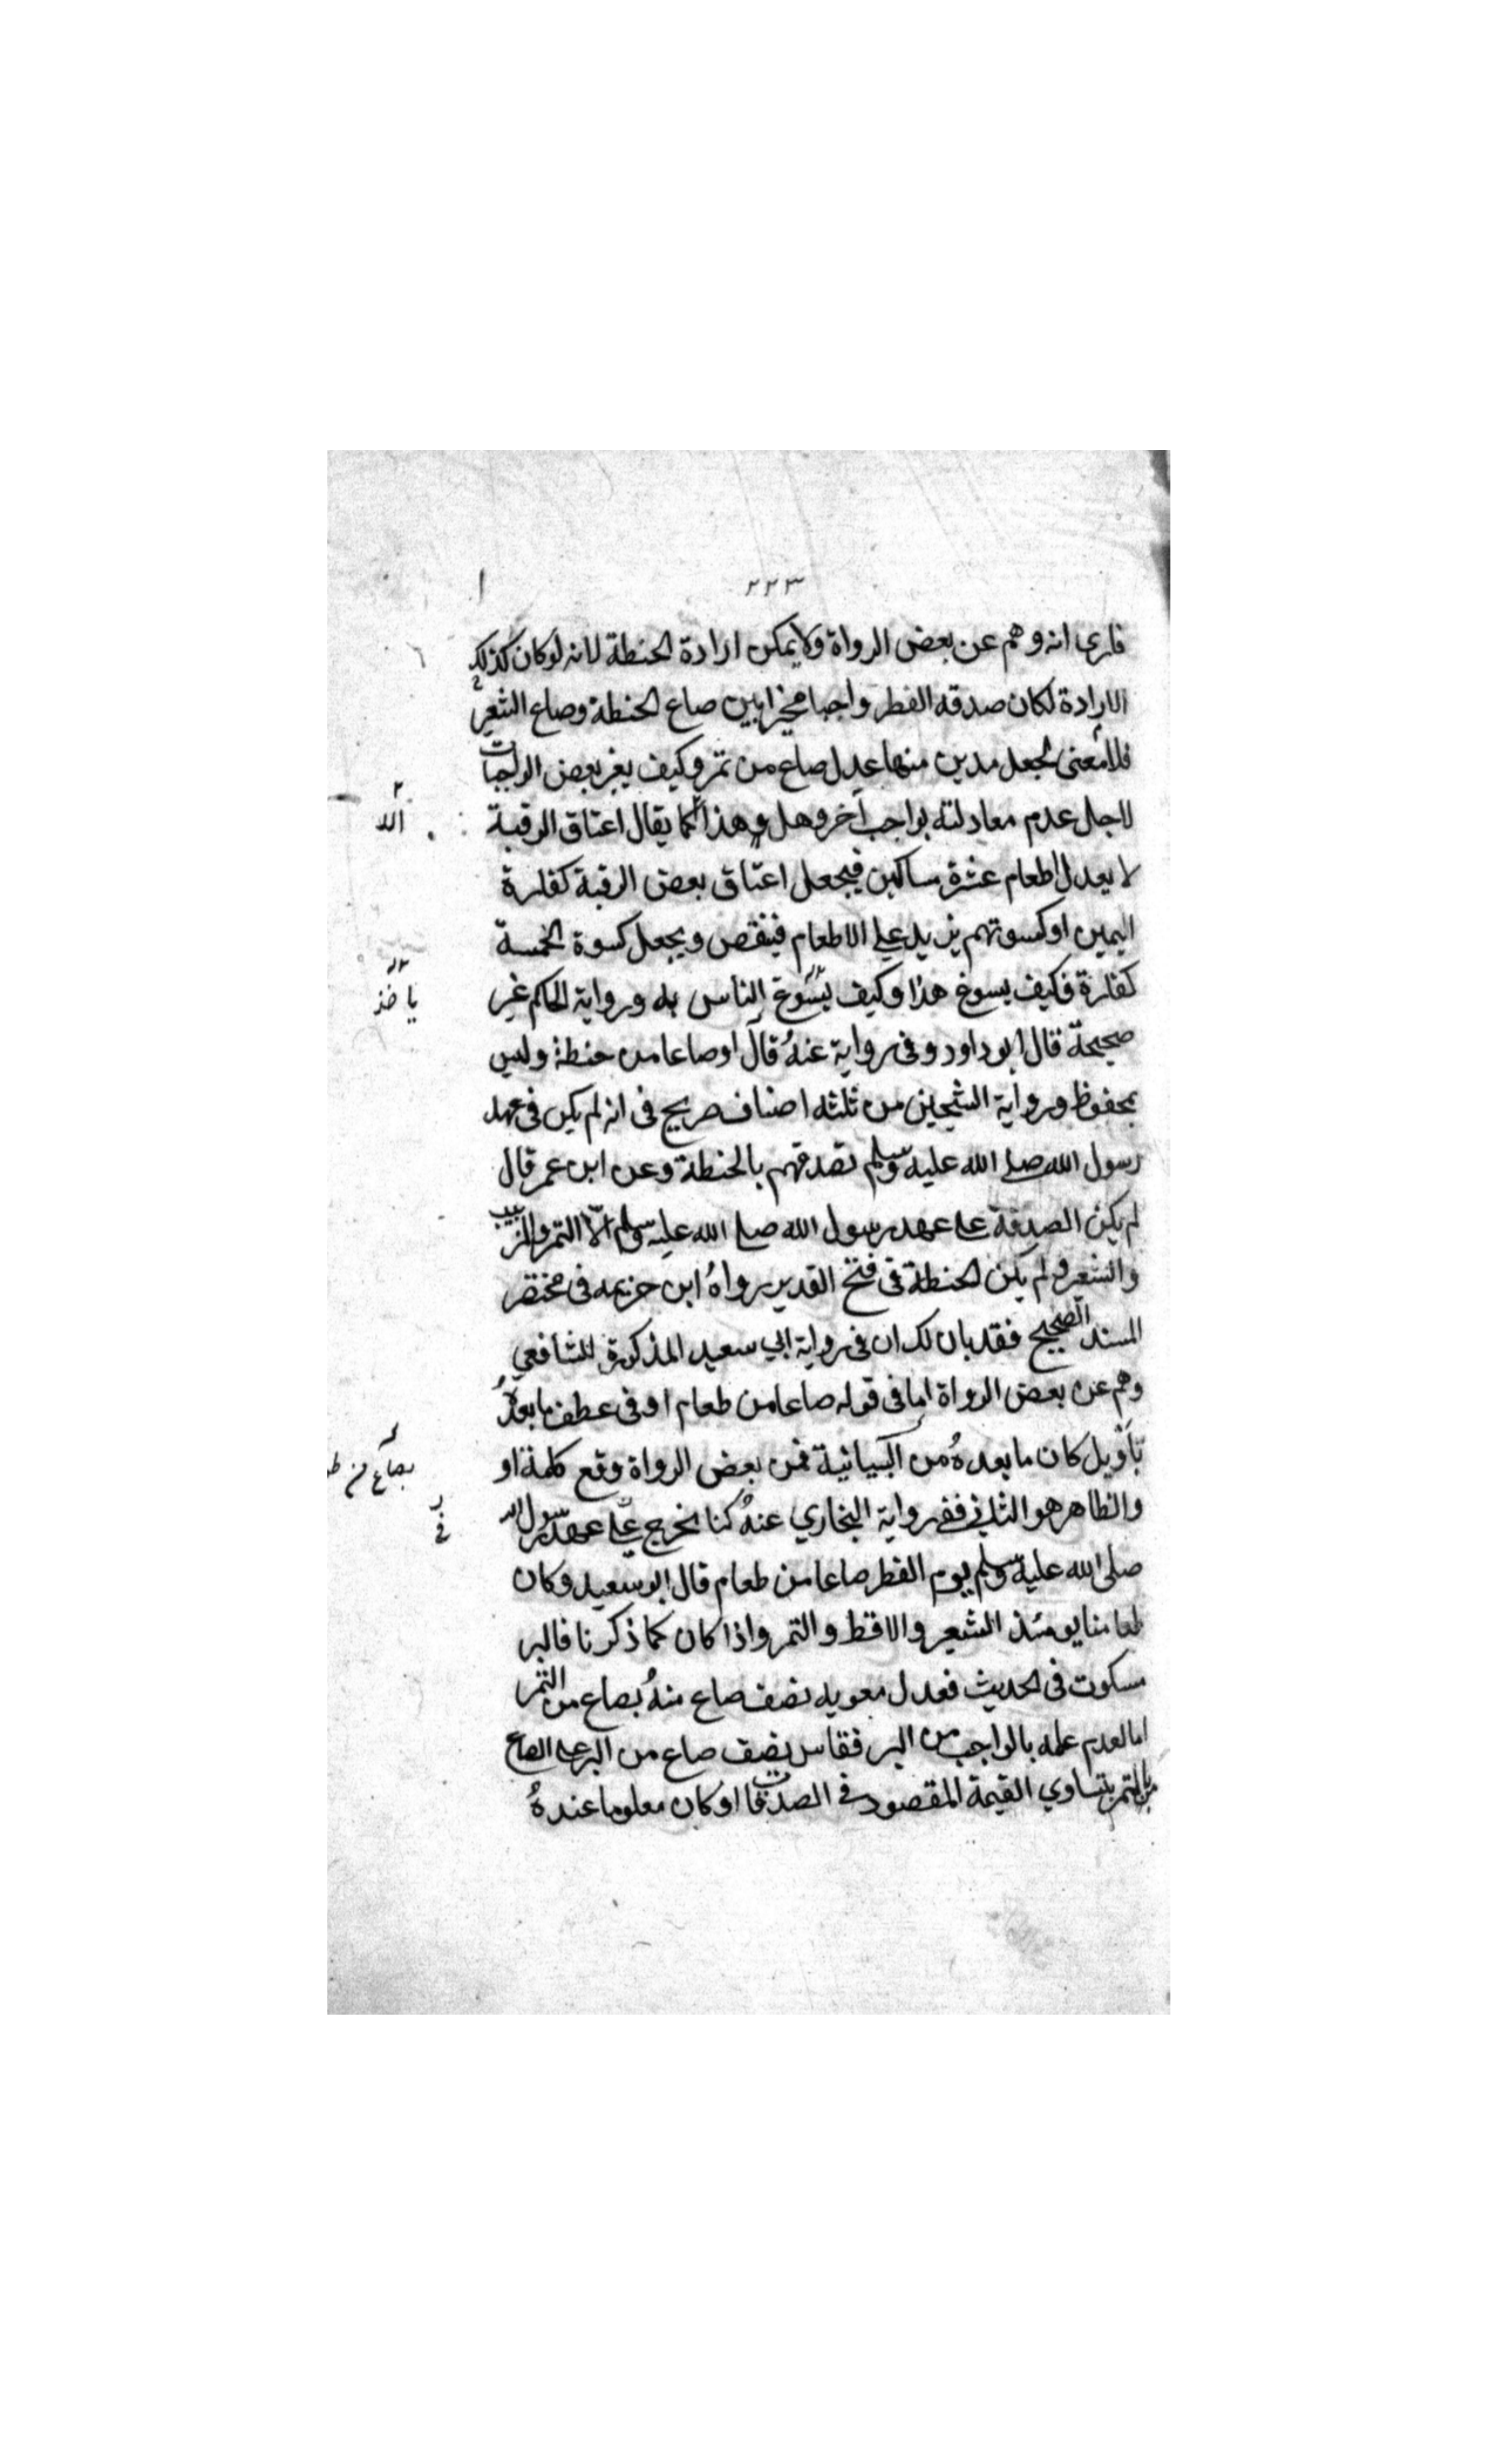 ٢٢٣
فارى انه وهم عن بعض الرواة ولا يمكن ارادة الحنطة لانه لو كان كذلك
الارادة لكان صدقه الفطر واجبا مخيرا بين صاع الحنطة وصاع الشعير
فلا معنى لجعل مدين منها عدل صاع من تمر وكيف يغير بعض الواجبات
لاجل عدم معادلته بواجب آخر وهل هذا الا كما يقال اعتاق الرقبة
لا يعدل اطعام عشرة مساكين فيجعل اعتاق بعض الرقبة كفارة
اليمين او كسوتهم يزيد على الاطعام فينقص ويجعل كسوة الخمسة
كفارة فكيف يسوغ هذا وكيف يسوغ الناس به ورواية الحاكم غير
صحيحة قال ابو داود وفى رواية عنهُ قال اوصاعا من حنطة وليس
بمحفوظ ورواية الشيخين من ثلثه اصناف صريح فى انه لم يكن فى عهد
رسول الله صلى الله عليه وسلم تصدقهم بالحنطة وعن ابن عمر قال
لم يكن الصدقة على عهد رسول الله صلى الله عليه وسلم الّا التمر والزبيب
والشعير ولم يكن الحنطة فى فتح القدير رواهُ ابن خزيمه فى مختصر
المسند الصحيح فقد بان لك ان فى رواية ابي سعيد المذكورة للشافعي
وهم عن بعض الرواة اما فى قوله صاعا من طعام او فى عطف ما بعدهُ
بأو بل كان ما بعدهُ من البيانية فمن بعض الرواة وقع كلمة او
والظاهر هو الثانى ففى رواية البخاري عنهُ كنا نخرج على عهد رسول الله
صلى الله عليه وسلم يوم الفطر صاعا من طعام قال ابو سعيد وكان
طعامنا يومئذ الشعير والاقط والتمر واذا كان كما ذكرنا فالبر
مسكوت فى الحديث فعدل معويه نصف صاع منهُ بصاع من التمر
اما لعدم علمه بالواجب من البر فقاس نصف صاع من البر على الصاع
من التمر بتساوي القيمة المقصود فى الصدقات او كان معلوما عندهُ
ياخذ
بصاع من
فى